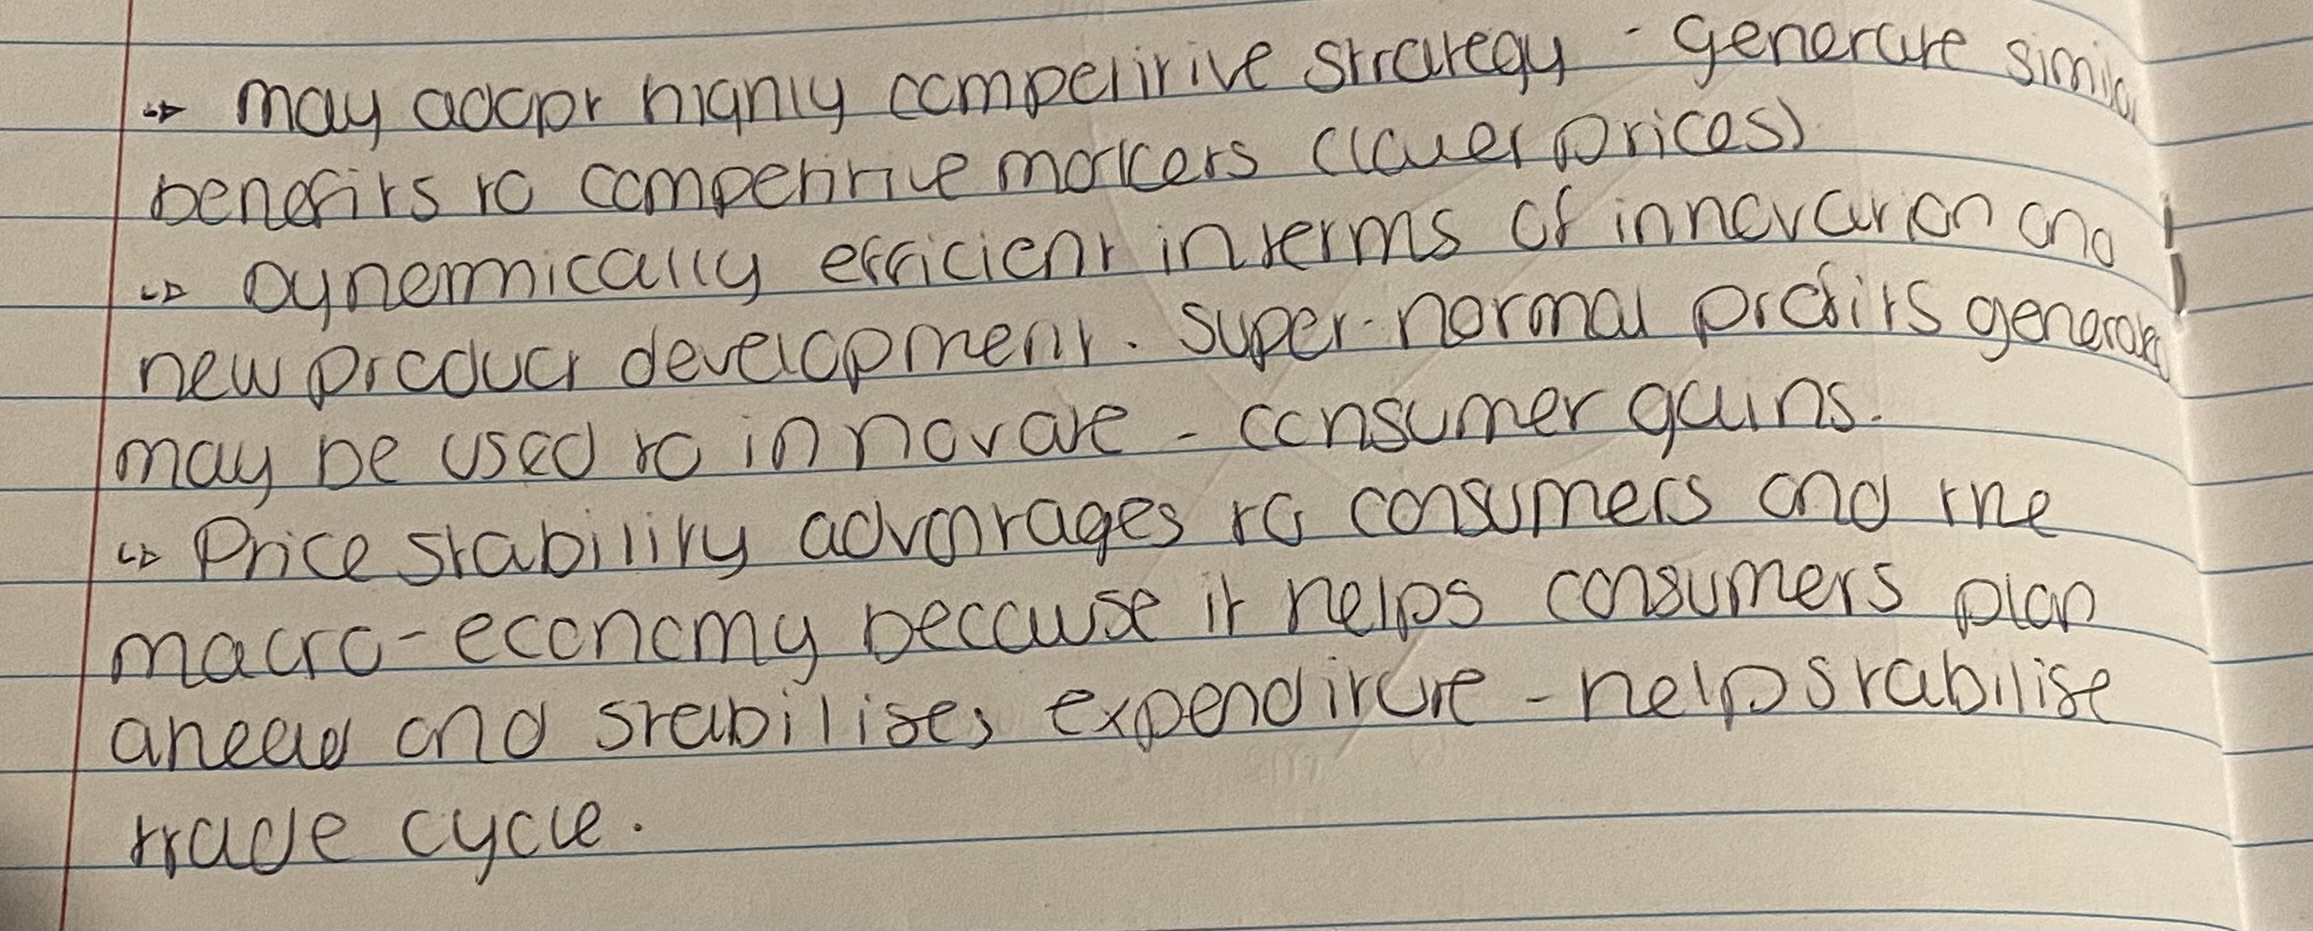 ↳ may adopt highly competitive strategy - generate similar
benefits to competitive markets (lower prices)
↳ Dynamically efficient in terms of innovation and
new product development. super-normal profits generated
may be used to innovate - consumer gains.
↳ Price stability advantages to consumers and the
macro-economy because it helps consumers plan
ahead and stabilises expenditure - help stabilise
trade cycle.